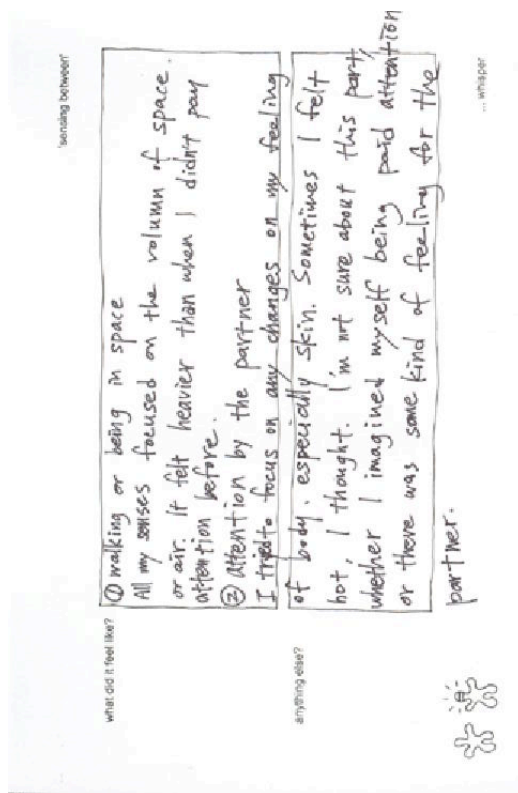 'sensing between'
what did it feel like?
① walking or being in space
All my senses focused on the volumn of space.
or air. It felt heavier than when I didn't pay
attention before.
② attention by the partner
I tried to focus on any changes on my feeling
anything else?
of body, especially skin. Sometimes I felt
hot, I thought. I'm not sure about this part,
whether I imagined myself being paid attention
or there was some kind of feeling for the
partner.
... whisper